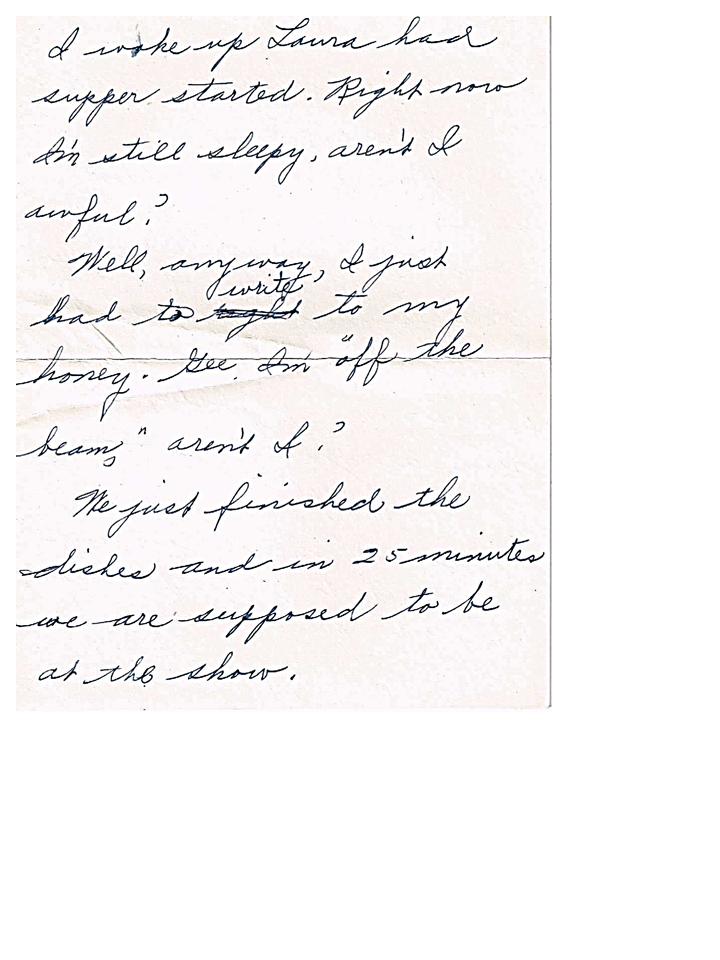 I woke up Laura had
supper started. Right now
I'm still sleepy, aren't I
awful?
Well, anyway, I just
write
had to right to my
honey. Gee I'm "off the
beam," aren't I?
We just finished the
dishes and in 25 minutes
we are supposed to be
at the show.